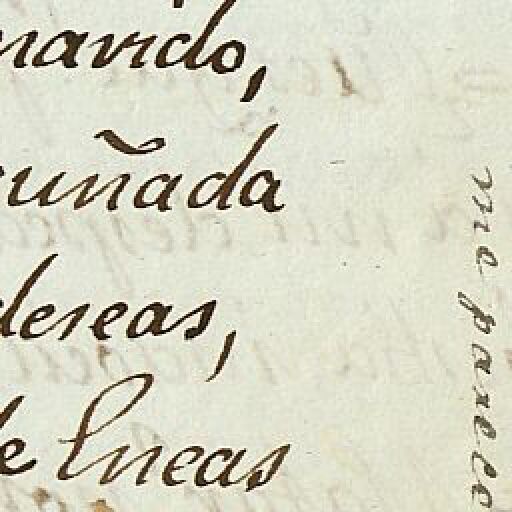 marido,
cuñada
deseas,
de Eneas
me parece